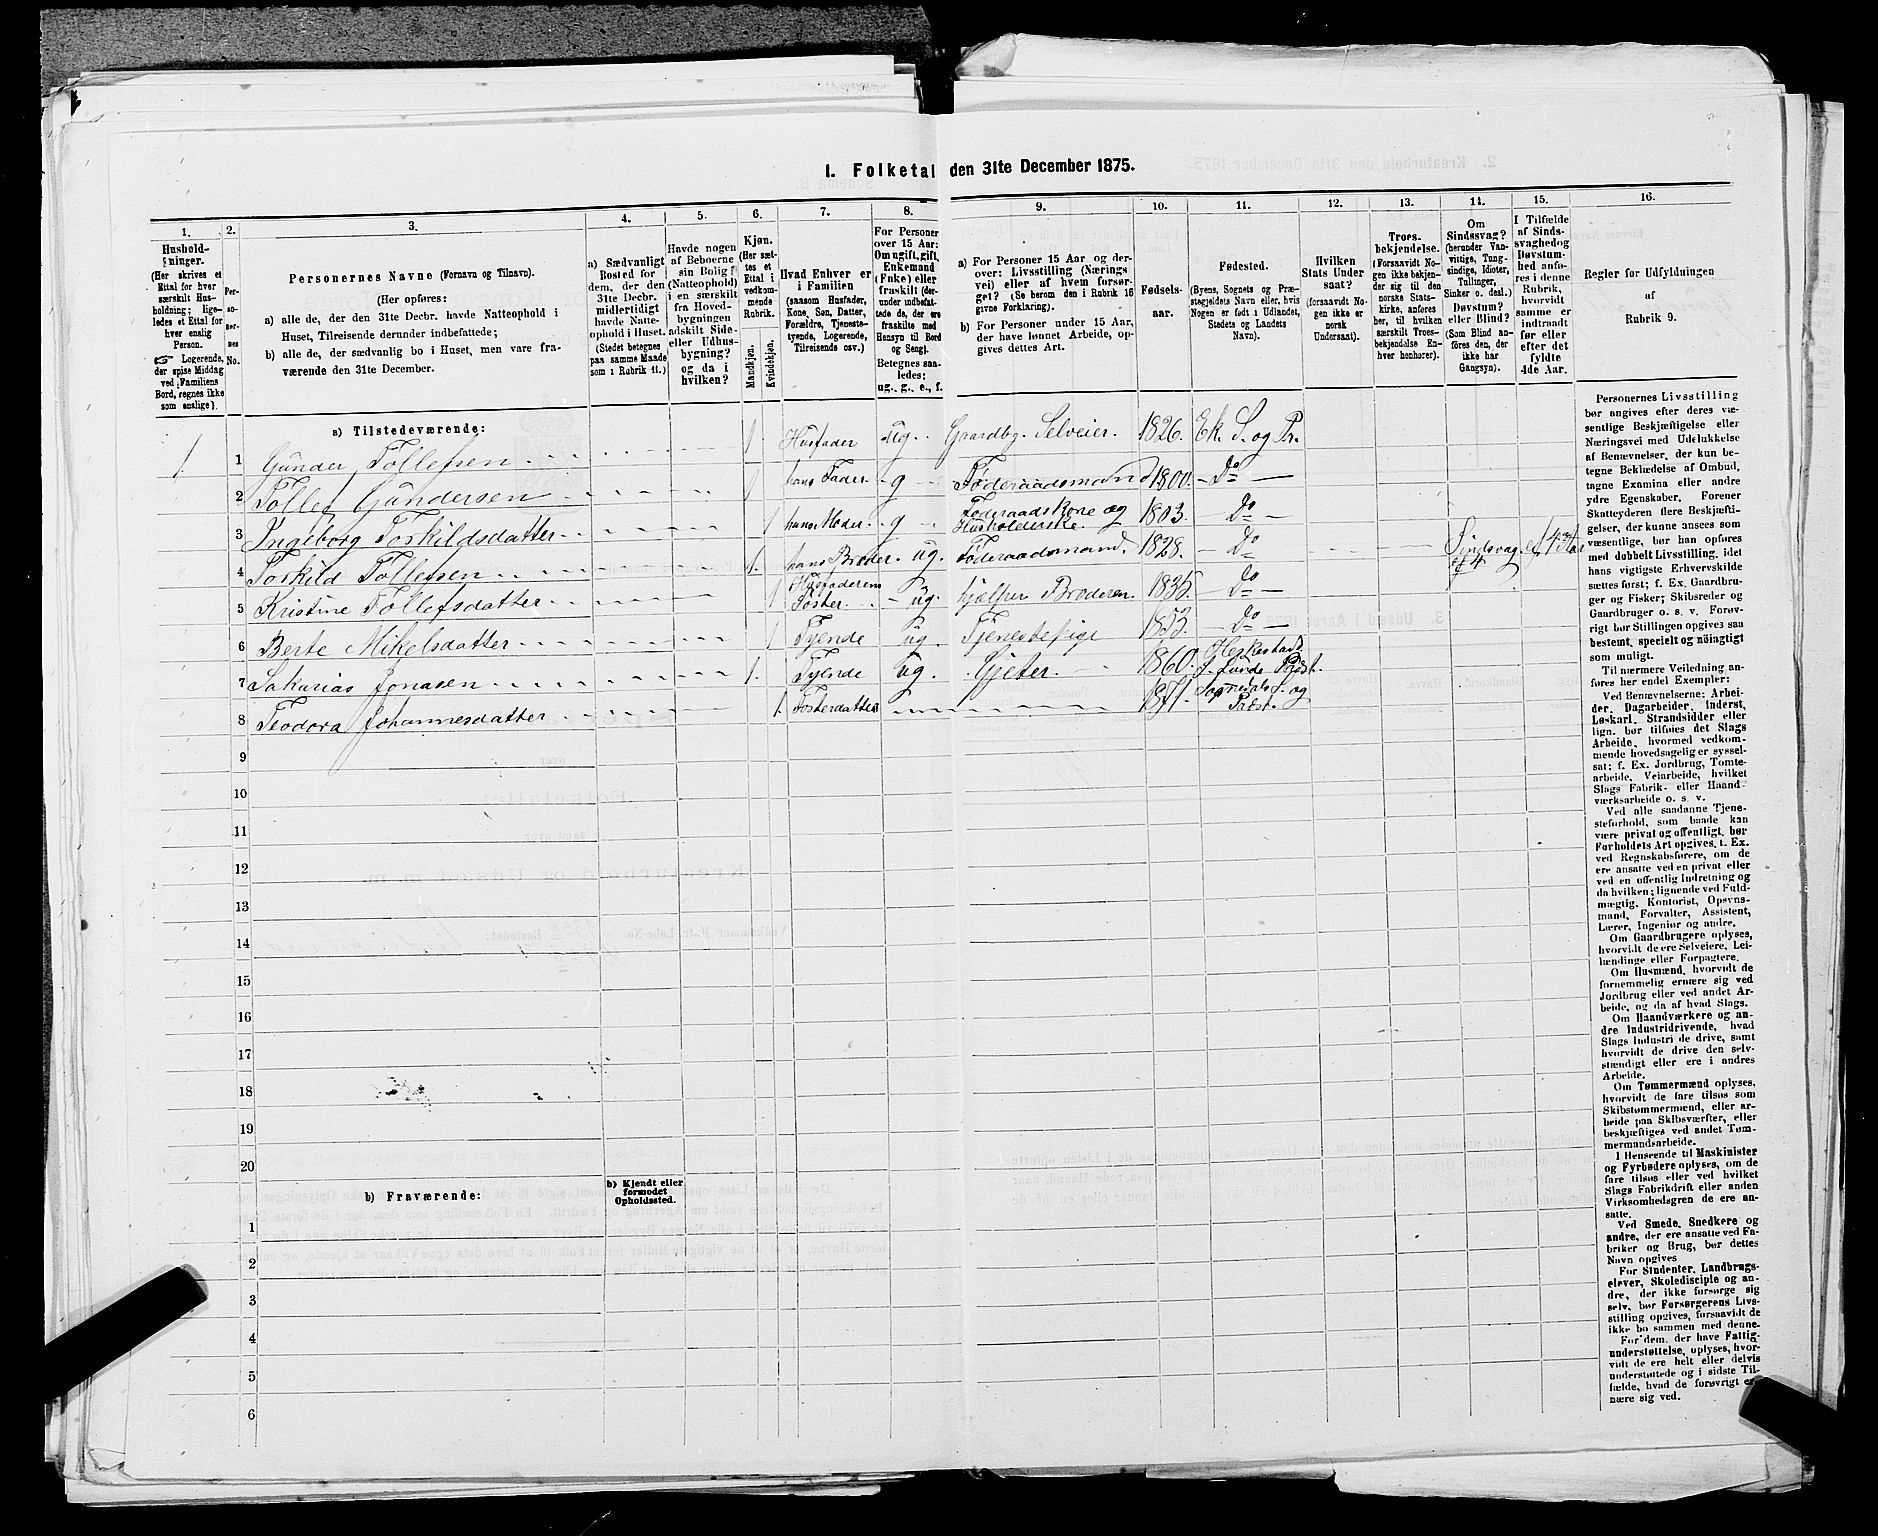 I. Folketal den 31te December 1875.
1. 2. 3. 4. 5. 6. 7. 8. 9. 10. 11. 12. 13. 14. 15. 16.
Hushold-
ninger.
(Her skrives et
Ettal for hver
særskilt Hus-
holdning; lige-
ledes et Ettal for
hver enslig
Person.
☞ Logerende,
der spise Middag
ved Familiens
Bord, regnes ikke
som enslige).
Per-
so-
ner-
nes
No.
Personernes Navne (Fornavn og Tilnavn).
(Her opføres:
a) alle de, der den 31te Decbr. havde Natteophold i
Huset, Tilreisende derunder indbefattede;
b) alle de, der sædvanlig bo i Huset, men vare fra-
værende den 31te December.
a) Sædvanligt
Bosted for
dem, der den
31te Decbr.
midlertidigt
havde Natte-
ophold i Huset.
(Stedet betegnes
paa samme Maade
som i Rubrik 11.)
Havde nogen
af Beboerne
sin Bolig
(Natteophold)
i en særskilt
fra Hoved-
bygningen
adskilt Side-
eller Udhus-
bygning?
og da i
hvilken?
Kjøn.
(Her sæt-
tes et
Ettal i
vedkom-
mende
Rubrik.
Mandkjøn.
Kvindekjøn.
Hvad Enhver er
i Familien
(saasom Husfader,
Kone, Søn, Datter,
Forældre, Tjeneste-
tyende, Logerende,
Tilreisende osv.)
For Personer
over 15 Aar:
Om ugift, gift,
Enkemand
(Enke) eller
fraskilt (der-
under indbefat-
tede de, der ere
fraskilte med
Hensyn til Bord
og Seng).
Betegnes saa-
ledes;
ug., g., e., f.
a) For Personer 15 Aar og der-
over: Livsstilling (Nærings
vei) eller af hvem forsør-
get? (Se herom den i Rubrik 16
givne Forklaring).
b) For Personer under 15 Aar,
der have lønnet Arbeide, op-
gives dettes Art.
Fødsels-
aar.
Fødested.
(Byens, Sognets og Præ-
stegjeldets Navn eller, hvis
Nogen er født i Udlandet,
Stedets og Landets
Navn).
Hvilken
Stats Under
saat?
(forsaavidt No-
gen ikke er
norsk
Undersaat).
Troes-
bekjendelse.
(Forsaavidt No-
gen ikke bekjen-
der sig til den
norske Stats-
kirke, anføres
her, til hvilken
særskilt Troes-
bekjendelse En-
hver henhører).
Om
Sindssvag?
(herunder Van-
vittige, Tung-
sindige, Idioter,
Tullinger,
Sinker o. desl.)
Døvstum?
eller Blind?
(Som Blind an-
føres den, der
ikke har
Gangsyn).
I Tilfælde
af Sinds-
svaghed og
Døvstum-
hed anfø-
res i denne
Rubrik,
hvorvidt
samme er
indtraadt
før eller
efter det
fyldte
4de Aar.
Regler for Udfyldningen
af
Rubrik 9.
a) Tilstedeværende:
1 1 Gunder Tollefsen 1 Husfader ug. Gaardbg. Selveier. 1826. Ek. S. og Pr.
2 Tollef Gundersen 1 hans Fader g Föderaadsmand 1800. Do
3 Ingeborg Torkildsdatter 1 hans Moder g Föderaadskone og Husholderske. 1803. Do
4 Torkild Tollefsen 1. hans Broder ug. Föderaadsmand. 1828. Do Sindsvag ef 4
5 Kristine Tollefsdatter 1 Husfaderens Söster ug. hjælper Broderen. 1835. Do
6 Berte Mikelsdatter 1 Tyende ug. Tjenestepige 1853. Do
7 Sakarias Jonasen 1. Tyende ug. Gjeter. 1860. Heskestads S. Lunde Præst.
8 Teodora Johannesdatter 1. Fosterdatter 1871. Sognedals S. og Præst.
9
10
11
12
13
14
15
16
17
18
19
20
b) Fraværende:
b) Kjendt eller
formodet
Opholdssted.
1
2
3
4
5
6
Personernes Livsstilling
bør angives efter deres væ-
sentlige Beskjæftigelse eller
Næringsvei med Udelukkelse
af Benævnelser, der kun be-
tegne Beklædelse af Ombud,
tagne Examina eller andre
ydre Egenskaber. Forener
Skatteyderen flere Beskjæfti-
gelser, der kunne ansees som
væsentlige, bør han opføres
med dobbelt Livsstilling, idet
hans vigtigste Erhvervskilde
sættes først; f. Ex. Gaardbru-
ger og Fisker; Skibsreder og
Gaardbruger o. s. v. Forøv-
rigt bør Stillingen opgives saa
bestemt, specielt og nøiagtigt
som muligt.
Til nærmere Veiledning an-
føres her endel Exempler:
Ved Benævnelserne: Arbei-
der, Dagarbeider, Inderst,
Løskarl, Strandsidder eller
lign. bør tilføies det Slags
Arbeide, hvormed vedkom-
mende hovedsagelig er syssel-
sat; f. Ex. Jordbrug, Tomte-
arbeide, Veiarbeide, hvilket
Slags Fabrik- eller Haand-
værksarbeide o. s. v.
Ved alle saadanne Tjene-
steforhold, som baade kan
være privat og offentligt, bør
Forholdets Art opgives, t. Ex.
ved Regnskabsførere, om de
ere ansatte ved en privat eller
ved en offentlig Indretning og
da hvilken; lignende ved Fuld-
mægtig, Kontorist, Opsyns-
mand, Forvalter, Assistent,
Lærer, Ingeniør og andre.
Om Gaardbrugere oplyses,
hvorvidt de ere Selveiere, Lei-
lændinge eller Forpagtere.
Om Husmænd, hvorvidt de
fornemmelig ernære sig ved
Jordbrug eller ved andet Ar-
beide, og da af hvad Slags.
Om Haandværkere og an-
dre Industridrivende, hvad
Slags Industri de drive, samt
hvorvidt de drive den selv-
stændigt eller ere i andres
Arbeide.
Om Tømmermænd oplyses,
hvorvidt de fare tilsøs som
Skibstømmermænd, eller ar-
beide paa Skibsværfter, eller
beskjæftiges ved andet Tøm-
mermandsarbeide.
I Henseende til Maskinister
og Fyrbødere oplyses, om de
fare tilsøs eller ved hvilket
Slags Fabrikdrift eller anden
Virksomhedsgren de ere an-
satte.
Ved Smede, Snedkere og
andre, der ere ansatte ved Fa-
briker og Brug, bør dettes
Navn opgives
For Studenter, Landbrugs-
elever, Skoledisciple og an-
dre, der ikke forsørge sig
selv, bør Forsørgerens Livs-
stilling opgives, forsaavidt de
ikke bo sammen med denne.
For dem, der have Fattig-
understøttelse, oplyses, hvor-
vidt de ere helt eller delvis
understøttede og i sidste Til-
fælde, hvad de forøvrigt er-
nære sig ved.